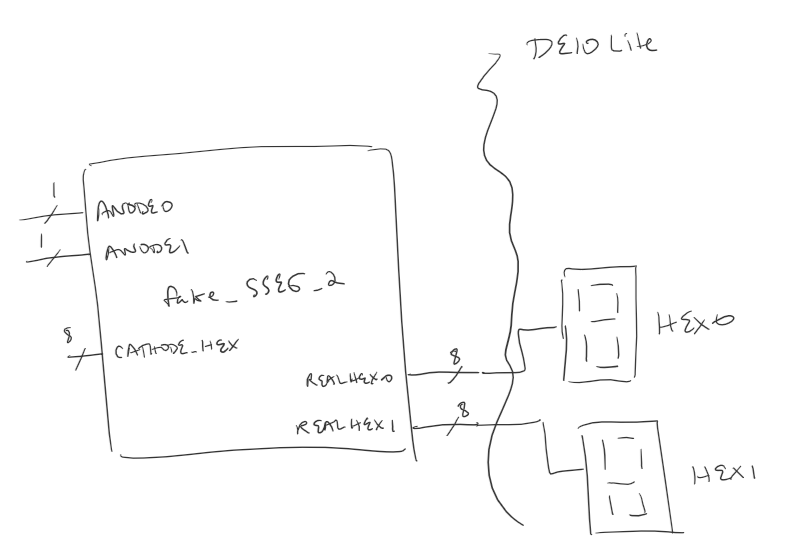 DE10 Lite
1
ANODE0
1
ANODE1
fake_SSEG_2
8
CATHODE_HEX
HEX0
8
REALHEX0
8
REALHEX1
HEX1